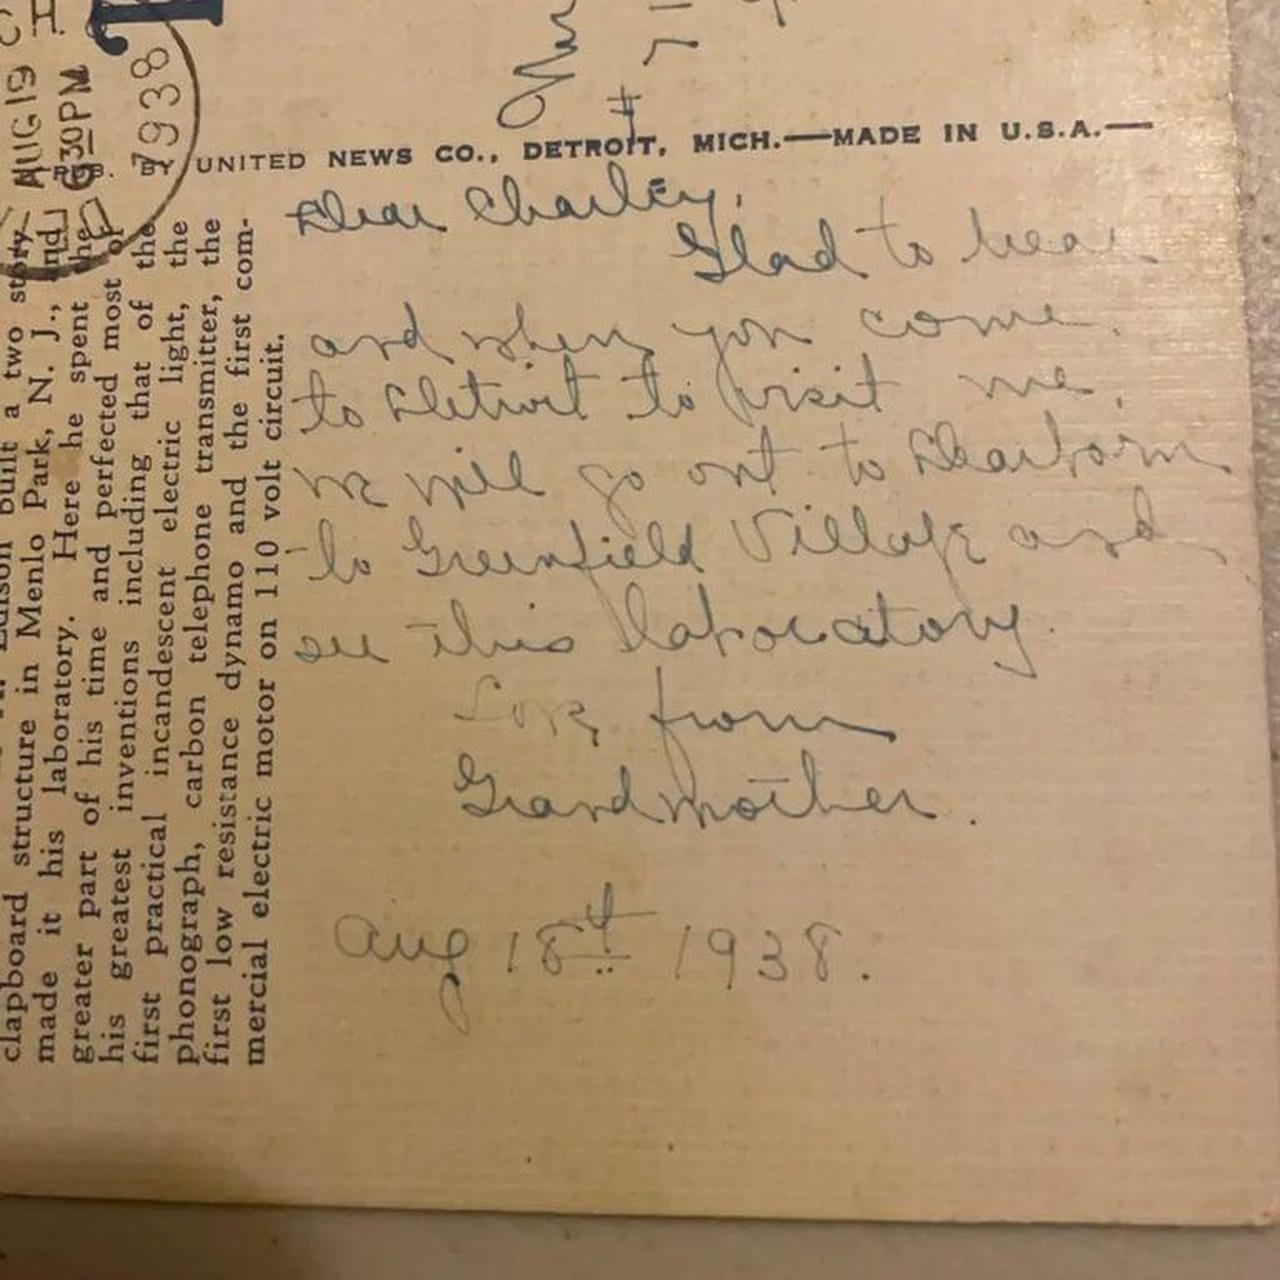 AUG 19
6 30 PM
1938
PUB. BY UNITED NEWS CO., DETROIT, MICH.—MADE IN U.S.A.—
Dear Charley,
Glad to hear
and when you come
to Detroit to visit me,
we will go out to Dearborn
to Greenfield Village and
see this laboratory.
Love from
Grandmother.
Aug 18th 1938.
built a two story
clapboard structure in Menlo Park, N. J., and
made it his laboratory. Here he spent the
greater part of his time and perfected most of
his greatest inventions including that of the
first practical incandescent electric light, the
phonograph, carbon telephone transmitter, the
first low resistance dynamo and the first com-
mercial electric motor on 110 volt circuit.